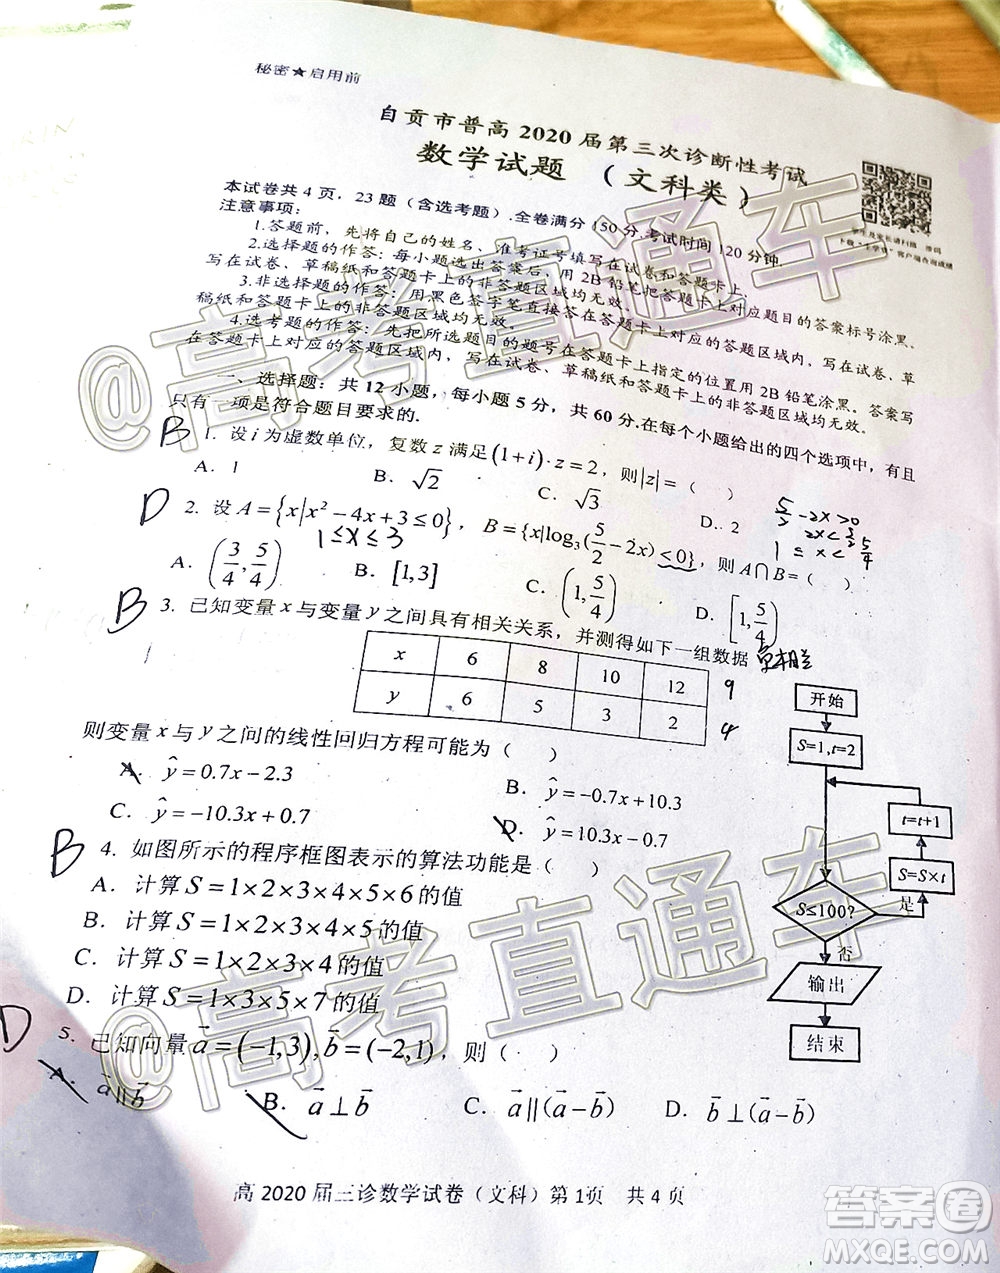 秘密★启用前
自贡市普高2020届第三次诊断性考试
数学试题 （文科类）
本试卷共4页，23题（含选考题）.全卷满分150分.考试时间120分钟.
注意事项：
1.答题前，先将自己的姓名、准考证号填写在试卷和答题卡上.
2.选择题的作答：每小题选出答案后，用2B铅笔把答题卡上对应题目的答案标号涂黑。
写在试卷、草稿纸和答题卡上的非答题区域均无效。
3.非选择题的作答：用黑色签字笔直接答在答题卡上对应的答题区域内，写在试卷、草
稿纸和答题卡上的非答题区域均无效。
4.选考题的作答：先把所选题目的题号在答题卡上指定的位置用2B铅笔涂黑。答案写
在答题卡上对应的答题区域内，写在试卷、草稿纸和答题卡上的非答题区域均无效。
一、选择题：共12小题，每小题5分，共60分.在每个小题给出的四个选项中，有且
只有一项是符合题目要求的.
B 1. 设i为虚数单位，复数z满足(1+i)·z=2，则|z|=（ ）
A. 1 B. √2 C. √3 D. 2
D 2. 设A={x|x²-4x+3≤0}，B={x|log₃(5/2-2x)≤0}，则A∩B=（ ）
1≤x≤3
5/2-2x>0
A. (3/4,5/4) B. [1,3] C. (1,5/4) D. [1,5/4)
B 3. 已知变量x与变量y之间具有相关关系，并测得如下一组数据
x 6 8 10 12 9
y 6 5 3 2 4
则变量x与y之间的线性回归方程可能为（ ）
A. ŷ=0.7x-2.3 B. ŷ=-0.7x+10.3
C. ŷ=-10.3x+0.7 D. ŷ=10.3x-0.7
B 4. 如图所示的程序框图表示的算法功能是（ ）
A. 计算S=1×2×3×4×5×6的值
B. 计算S=1×2×3×4×5的值
C. 计算S=1×2×3×4的值
D. 计算S=1×3×5×7的值
开始
S=1,t=2
t=t+1
S=S×t
S≤100?
是
否
输出
结束
D 5. 已知向量a⃗=(-1,3),b⃗=(-2,1)，则（ ）
A. a⃗∥b⃗ B. a⃗⊥b⃗ C. a⃗∥(a⃗-b⃗) D. b⃗⊥(a⃗-b⃗)
高2020届三诊数学试卷（文科）第1页 共4页
@高考直通车
@高考直通车
答案卷
MXQE.COM